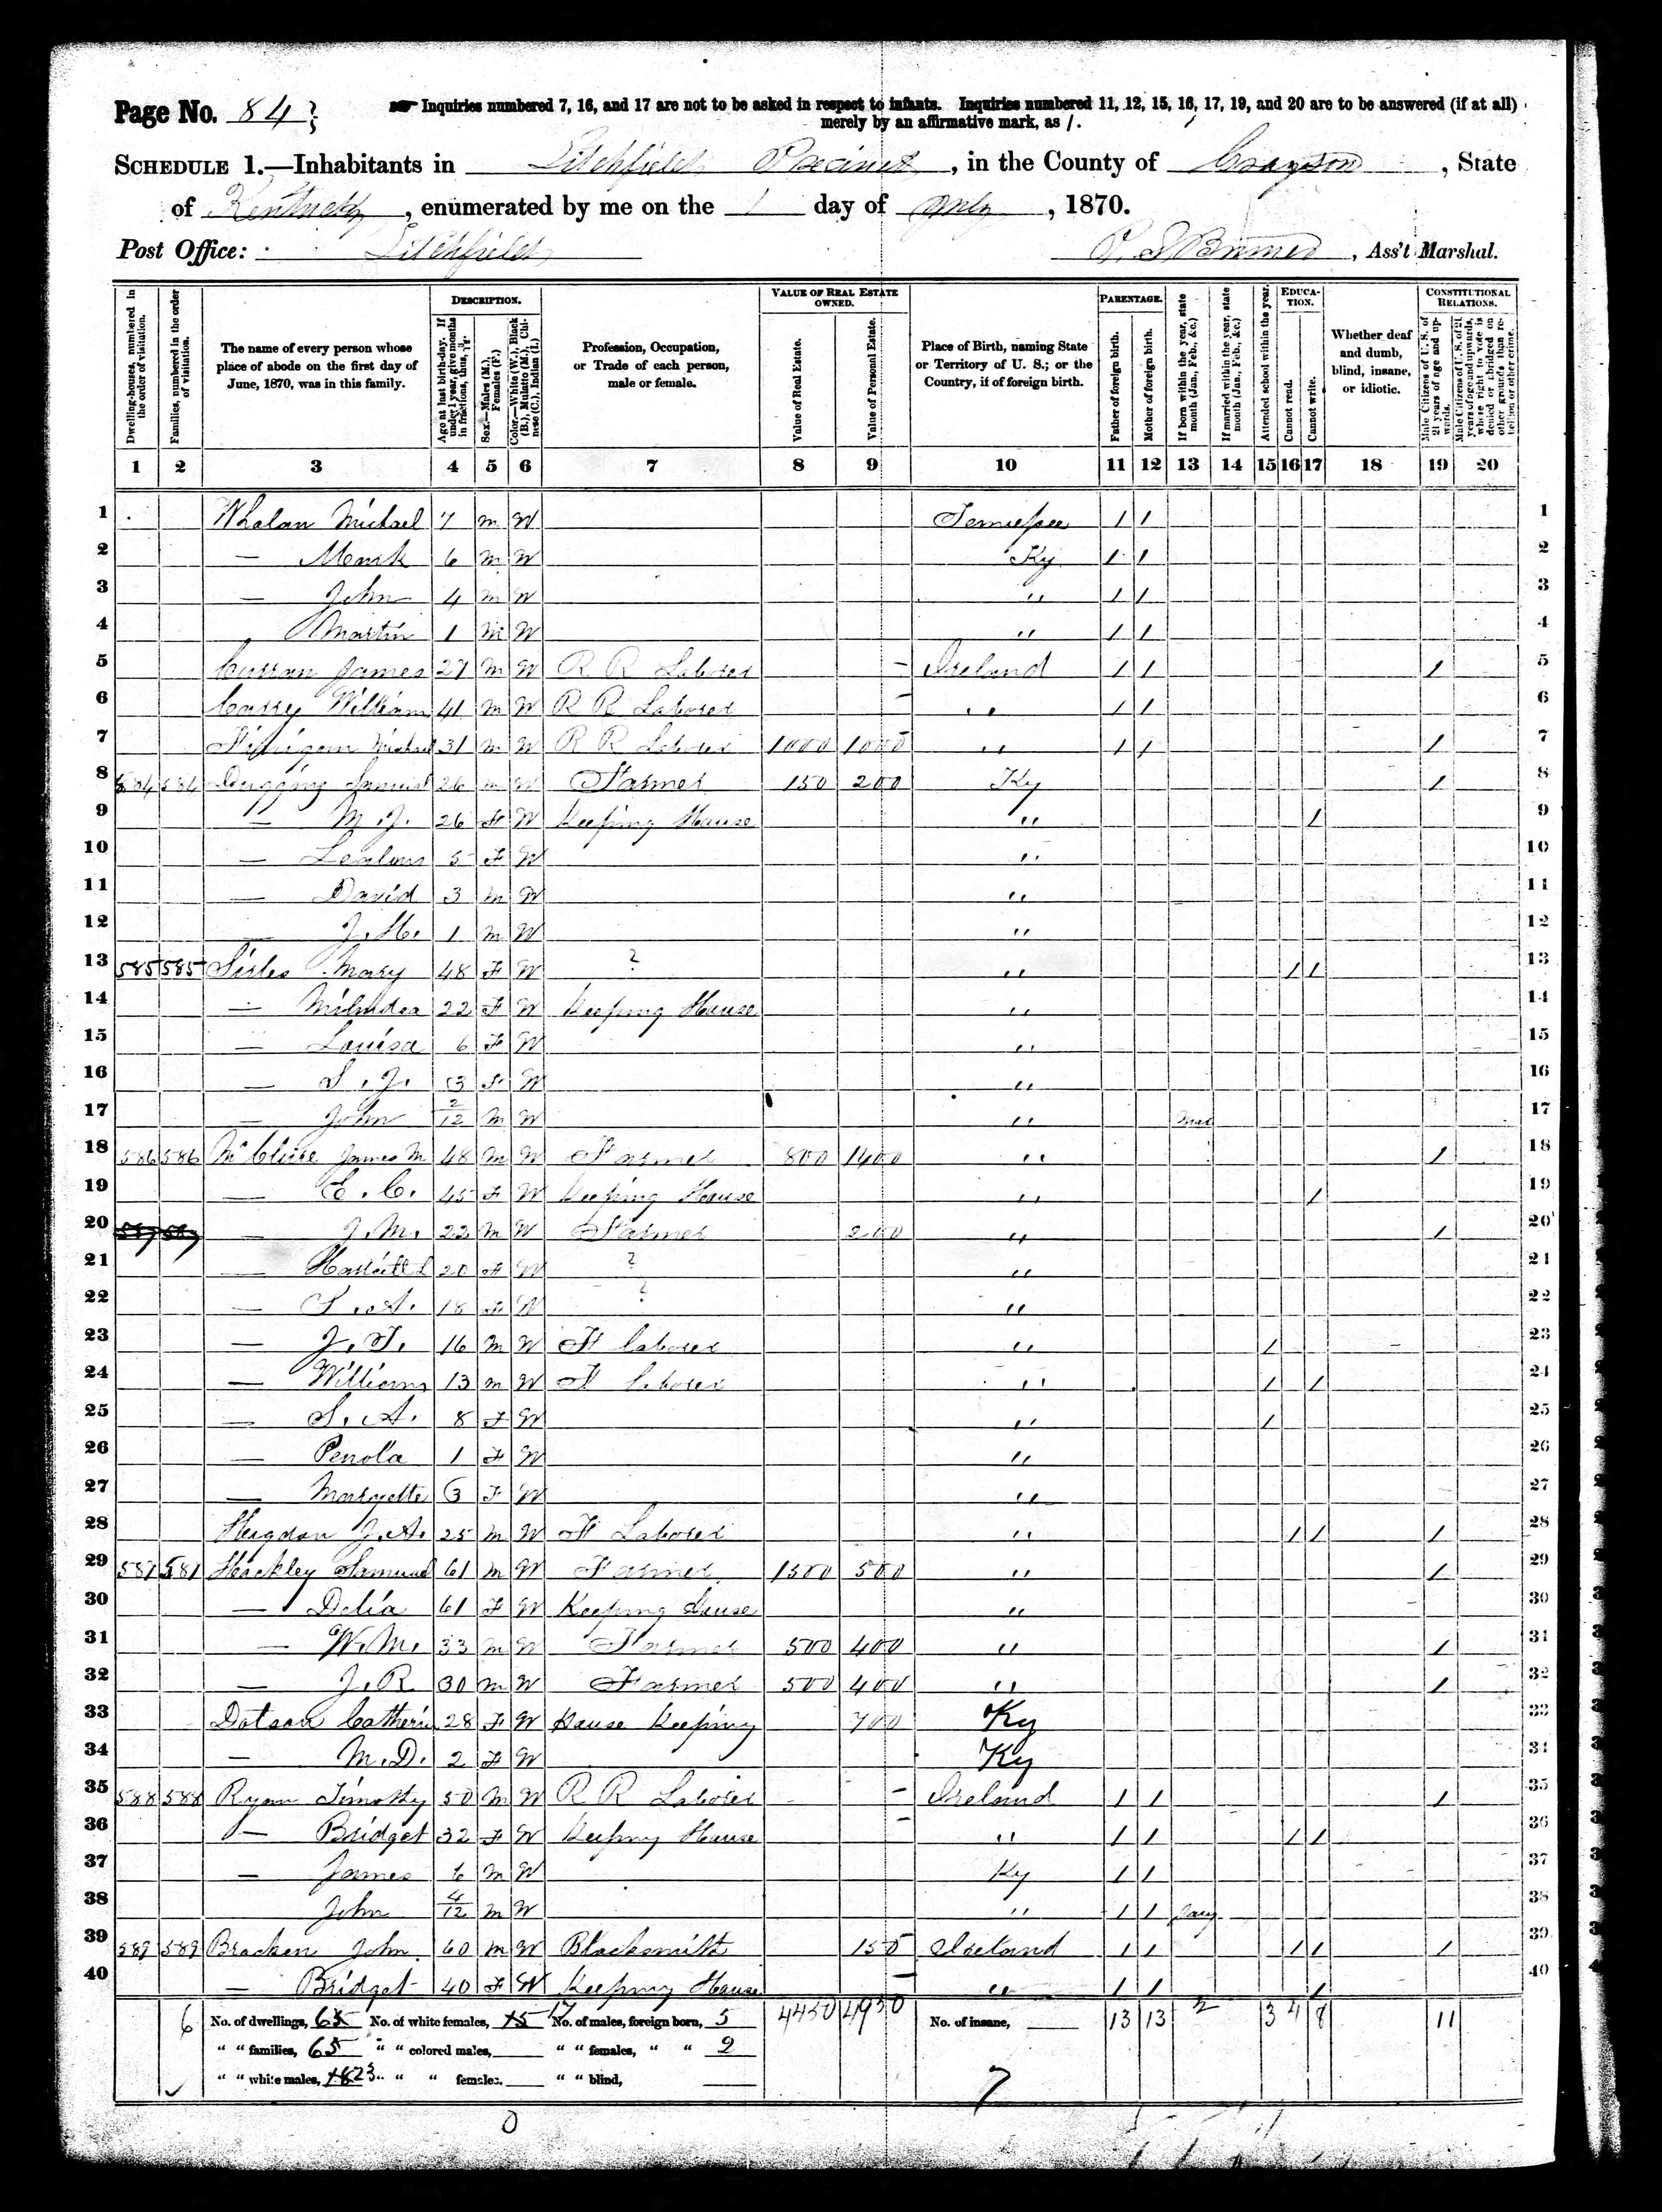 Page No. 84
Inquiries numbered 7, 16, and 17 are not to be asked in respect to infants. Inquiries numbered 11, 12, 15, 16, 17, 19, and 20 are to be answered (if at all)
merely by an affirmative mark, as /.
SCHEDULE 1.—Inhabitants in Litchfield Precinct, in the County of Grayson, State
of Kentucky, enumerated by me on the 1 day of July, 1870.
Post Office: Litchfield , Ass't Marshal.
Dwelling-houses, numbered in the order of visitation.
Families, numbered in the order of visitation.
The name of every person whose place of abode on the first day of June, 1870, was in this family.
DESCRIPTION.
Age at last birth-day. If under 1 year, give months in fractions, thus, 3/12.
Sex.—Males (M.), Females (F.)
Color.—White (W.), Black (B.), Mulatto (M.), Chinese (C.), Indian (I.)
Profession, Occupation, or Trade of each person, male or female.
VALUE OF REAL ESTATE OWNED.
Value of Real Estate.
Value of Personal Estate.
Place of Birth, naming State or Territory of U. S.; or the Country, if of foreign birth.
PARENTAGE.
Father of foreign birth.
Mother of foreign birth.
If born within the year, state month (Jan., Feb., &c.)
If married within the year, state month (Jan., Feb., &c.)
Attended school within the year.
EDUCATION.
Cannot read.
Cannot write.
Whether deaf and dumb, blind, insane, or idiotic.
CONSTITUTIONAL RELATIONS.
Male Citizens of U. S. of 21 years of age and upwards.
Male Citizens of U. S. of 21 years of age and upwards, whose right to vote is denied or abridged on other grounds than rebellion or other crime.
1 2 3 4 5 6 7 8 9 10 11 12 13 14 15 16 17 18 19 20
1 Whalan Michael 7 M W Tennessee / / 1
2 — 6 M W Ky / / 2
3 — John 4 M W " / / 3
4 Martin 1 M W " / / 4
5 Curran James 27 M W R R Laborer – Ireland / / / 5
6 William 41 M W R R Laborer – " / / 6
7 Michael 31 M W R R Laborer 1000 1000 " / / / 7
8 584 584 Samuel 26 M W Farmer 150 200 Ky / 8
9 — M. J. 26 F W Keeping House " / 9
10 — 5 F W " 10
11 — David 3 M W " 11
12 — J. H. 1 M W " 12
13 585 585 Mary 48 F W ? " / / 13
14 — 22 F W Keeping House " 14
15 — Louisa 6 F W " 15
16 — S. J. 3 F W " 16
17 — John 2/12 M W " 17
18 586 586 James M 48 M W Farmer 800 1400 " / 18
19 — E. C. 45 F W Keeping House " / 19
20 — J. M. 22 M W Farmer 200 " / 20
21 — 20 F W ? " 21
22 — 18 F W ? " 22
23 — J. T. 16 M W F Laborer " / 23
24 — William 13 M W F Laborer " / / 24
25 — S. A. 8 F W " / 25
26 — Penola 1 F W " 26
27 — 3 F W " 27
28 J. A. 25 M W F Laborer " / / / 28
29 587 587 Hackley Samuel 61 M W Farmer 1500 500 " / 29
30 — Delia 61 F W Keeping House " 30
31 — W. M. 33 M W Farmer 500 400 " / 31
32 — J. R 30 M W Farmer 500 400 " / 32
33 Dotson 28 F W House Keeping 700 Ky 33
34 — M. D. 2 F W Ky 34
35 588 588 Ryan Timothy 50 M W R R Laborer – Ireland / / / 35
36 — Bridget 32 F W Keeping House – " / / / / 36
37 — James 6 M W Ky / / 37
38 John 4/12 M W " / / Jany 38
39 589 589 Bracken John 60 M W Blacksmith 150 Ireland / / / / / 39
40 — Bridget 40 F W Keeping House – " / / / 40
6 No. of dwellings, 65 No. of white females, 15 17 No. of males, foreign born, 5 4450 4950 No. of insane, 13 13 2 3 4 8 11
" " families, 65 " " colored males, " " females, " " 2
" " white males, 23 " " females. " " blind,
7
0